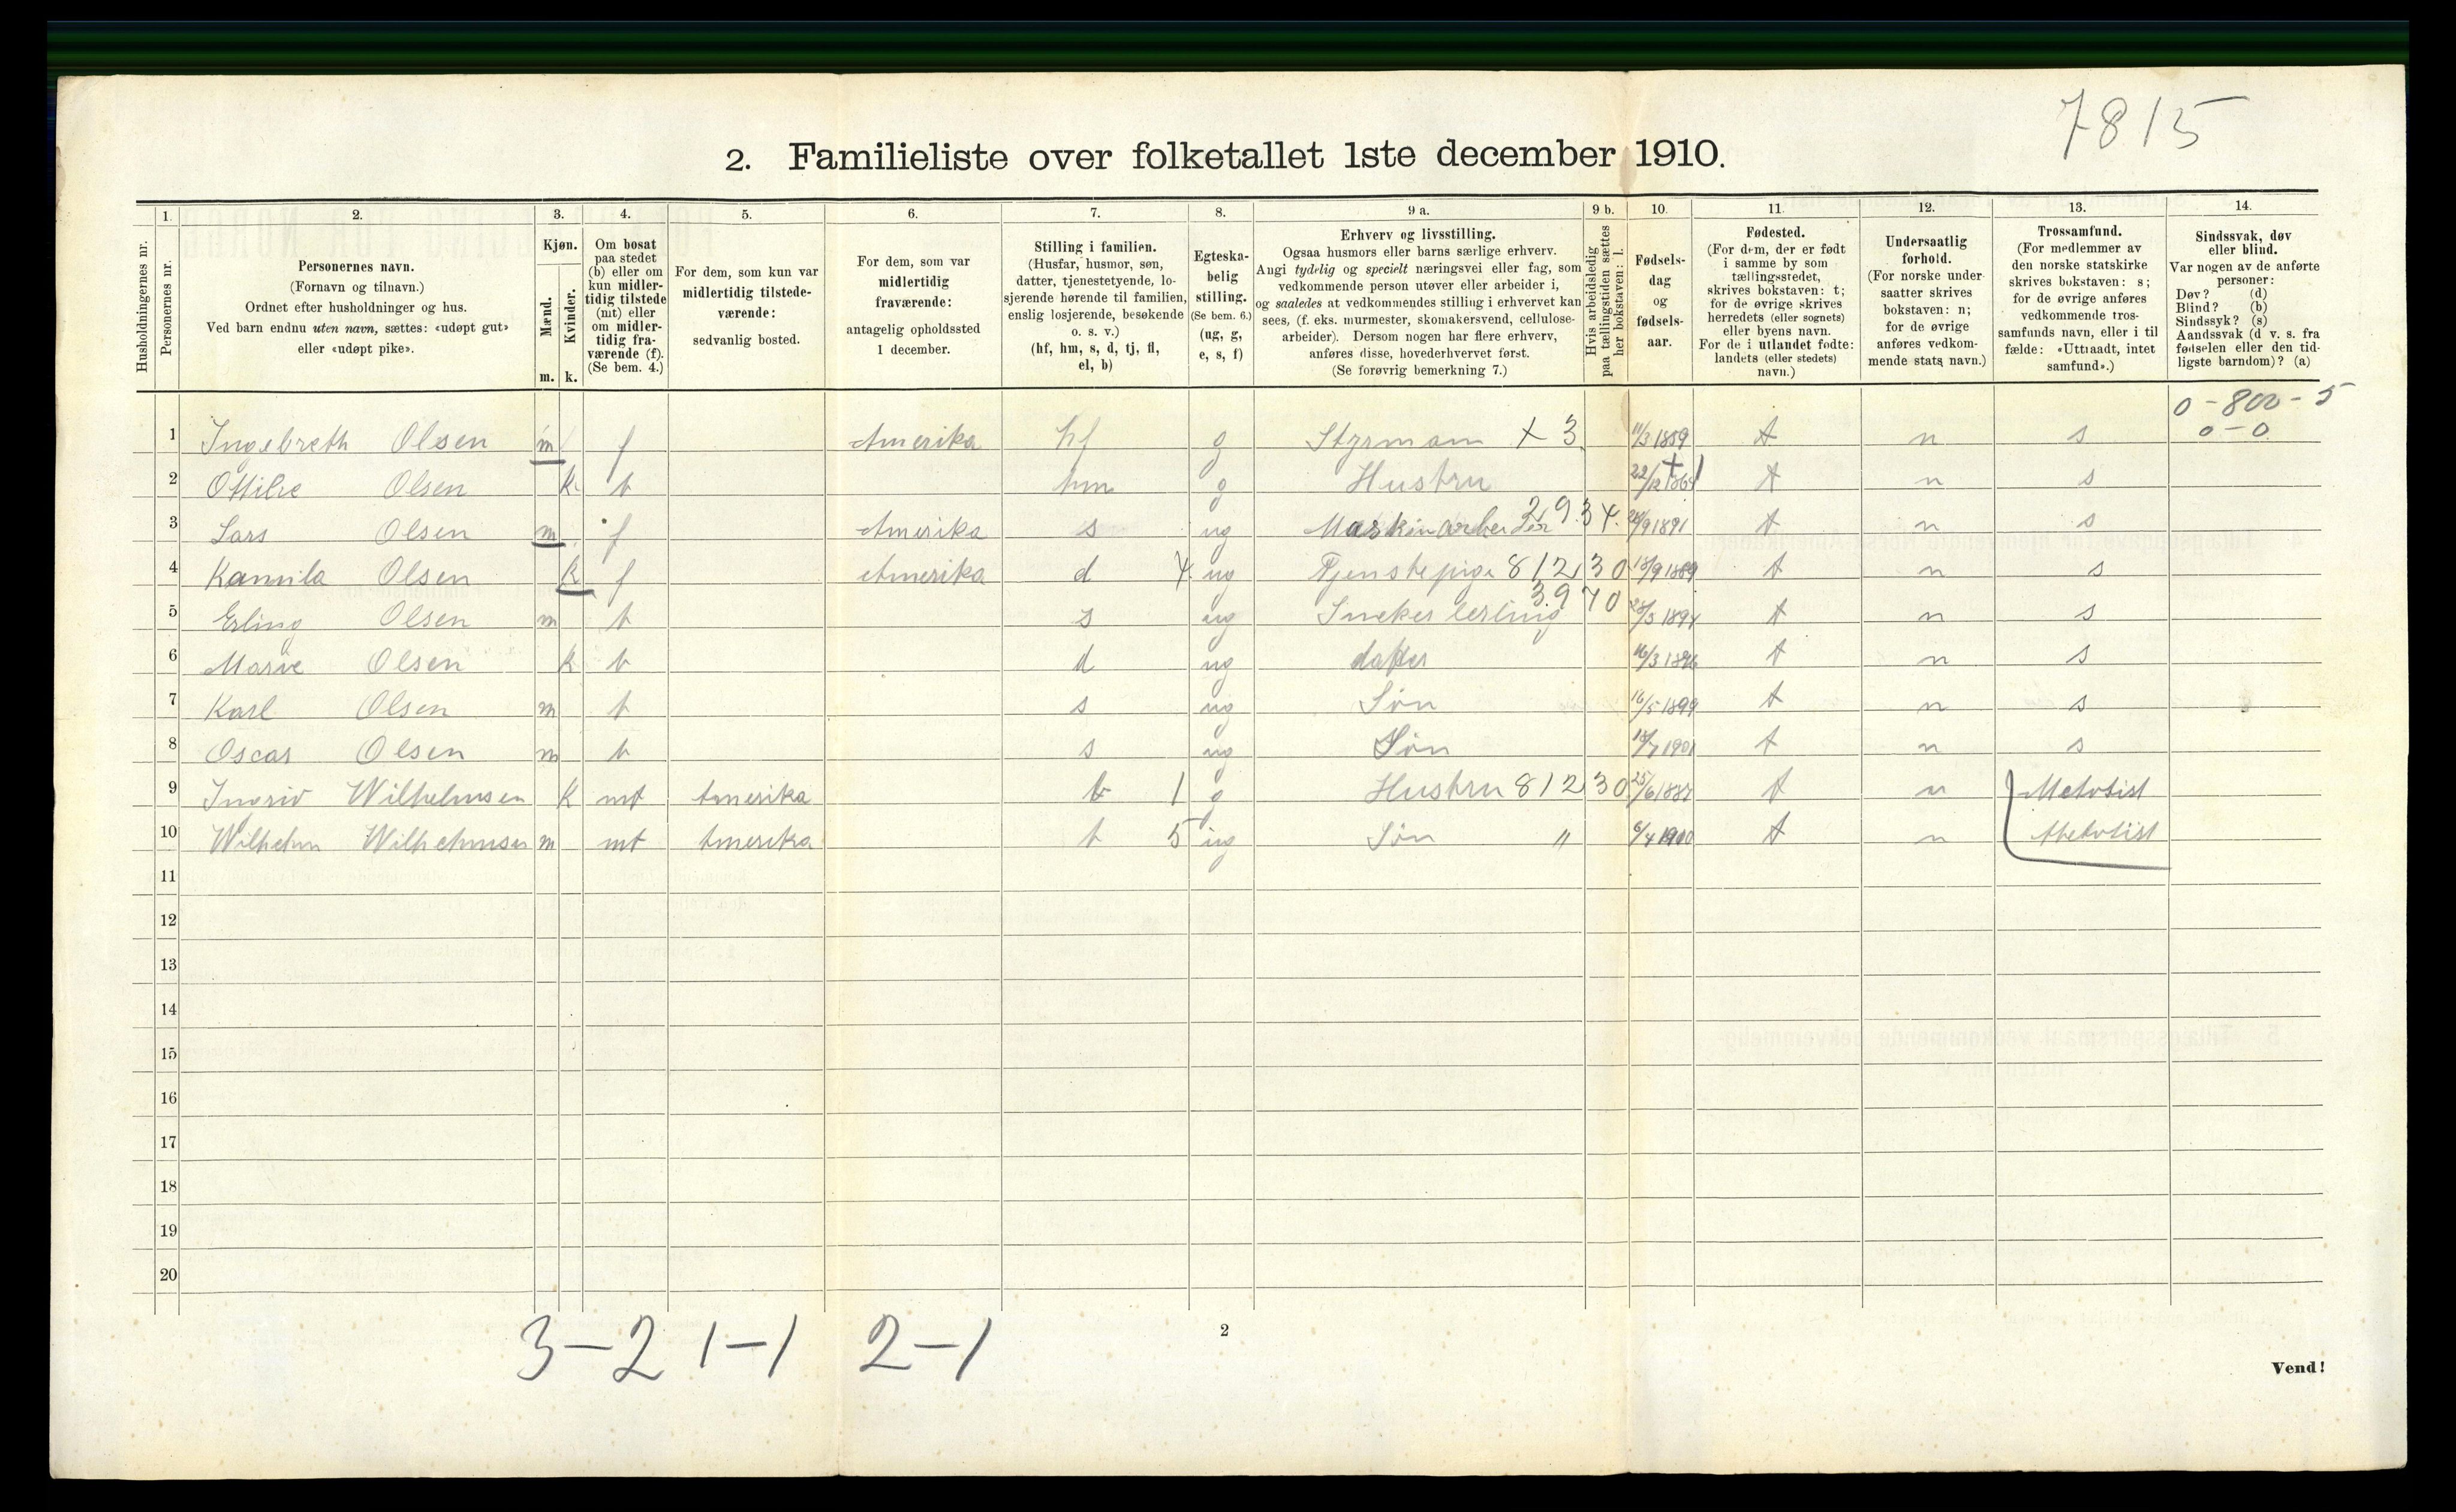 7815
2. Familieliste over folketallet 1ste december 1910.
Husholdningernes nr.
1. Personernes nr.
2. Personernes navn.
(Fornavn og tilnavn.)
Ordnet efter husholdninger og hus.
Ved barn endnu uten navn, sættes: «udøpt gut»
eller «udøpt pike».
3. Kjøn.
Mænd. m.
Kvinder. k.
4. Om bosat
paa stedet
(b) eller om
kun midler-
tidig tilstede
(mt) eller
om midler-
tidig fra-
værende (f).
(Se bem. 4.)
5. For dem, som kun var
midlertidig tilstede-
værende:
sedvanlig bosted.
6. For dem, som var
midlertidig
fraværende:
antagelig opholdssted
1 december.
7. Stilling i familien.
(Husfar, husmor, søn,
datter, tjenestetyende, lo-
sjerende hørende til familien,
enslig losjerende, besøkende
o. s. v.)
(hf, hm, s, d, tj, fl,
el, b)
8. Egteska-
belig
stilling.
(Se bem. 6.)
(ug, g,
e, s, f)
9 a. Erhverv og livsstilling.
Ogsaa husmors eller barns særlige erhverv.
Angi tydelig og specielt næringsvei eller fag, som
vedkommende person utøver eller arbeider i,
og saaledes at vedkommendes stilling i erhvervet kan
sees, (f. eks. murmester, skomakersvend, cellulose-
arbeider). Dersom nogen har flere erhverv,
anføres disse, hovederhvervet først.
(Se forøvrig bemerkning 7.)
9 b. Hvis arbeidsledig
paa tællingstiden sættes
her bokstaven: l.
10. Fødsels-
dag
og
fødsels-
aar.
11. Fødested.
(For dem, der er født
i samme by som
tællingsstedet,
skrives bokstaven: t;
for de øvrige skrives
herredets (eller sognets)
eller byens navn.
For de i utlandet fødte:
landets (eller stedets)
navn.)
12. Undersaatlig
forhold.
(For norske under-
saatter skrives
bokstaven: n;
for de øvrige
anføres vedkom-
mende stats navn.)
13. Trossamfund.
(For medlemmer av
den norske statskirke
skrives bokstaven: s;
for de øvrige anføres
vedkommende tros-
samfunds navn, eller i til
fælde: «Uttraadt, intet
samfund».)
14. Sindssvak, døv
eller blind.
Var nogen av de anførte
personer:
Døv? (d)
Blind? (b)
Sindssyk? (s)
Aandssvak (d v. s. fra
fødselen eller den tid-
ligste barndom)? (a)
0 - 800 - 5
0 - 0
1 Ingebreth Olsen m f Amerika hf g Styrmann + 3 11/3 1859 t n s
2 Ottilie Olsen k b hm g Hustru 22/12 t n s
3 Lars Olsen m f Amerika s ug Maskinarbeider 29 34. /9 1891 t n s
4 Kamila Olsen k f Amerika d 4 ug Tjenstepige 812 30 /9 1889 t n s
5 Erling Olsen m b s ug Sneker lerling 39 70 1894 t n s
6 Marie Olsen k b d ug datter 16/3 1896 t n s
7 Karl Olsen m b s ug Søn 16/5 1899 t n s
8 Oscar Olsen m b s ug Søn 1901 t n s
9 Ingrid Wilhelmsen k mt Amerika b 1 g Hustru 812 30 25/6 t n Metodist
10 Wilhelm Wilhelmsen m mt Amerika b 5 ug Søn " 6/4 1900 t n Metodist
11
12
13
14
15
16
17
18
19
20
3-2 1-1 2-1
2
Vend!